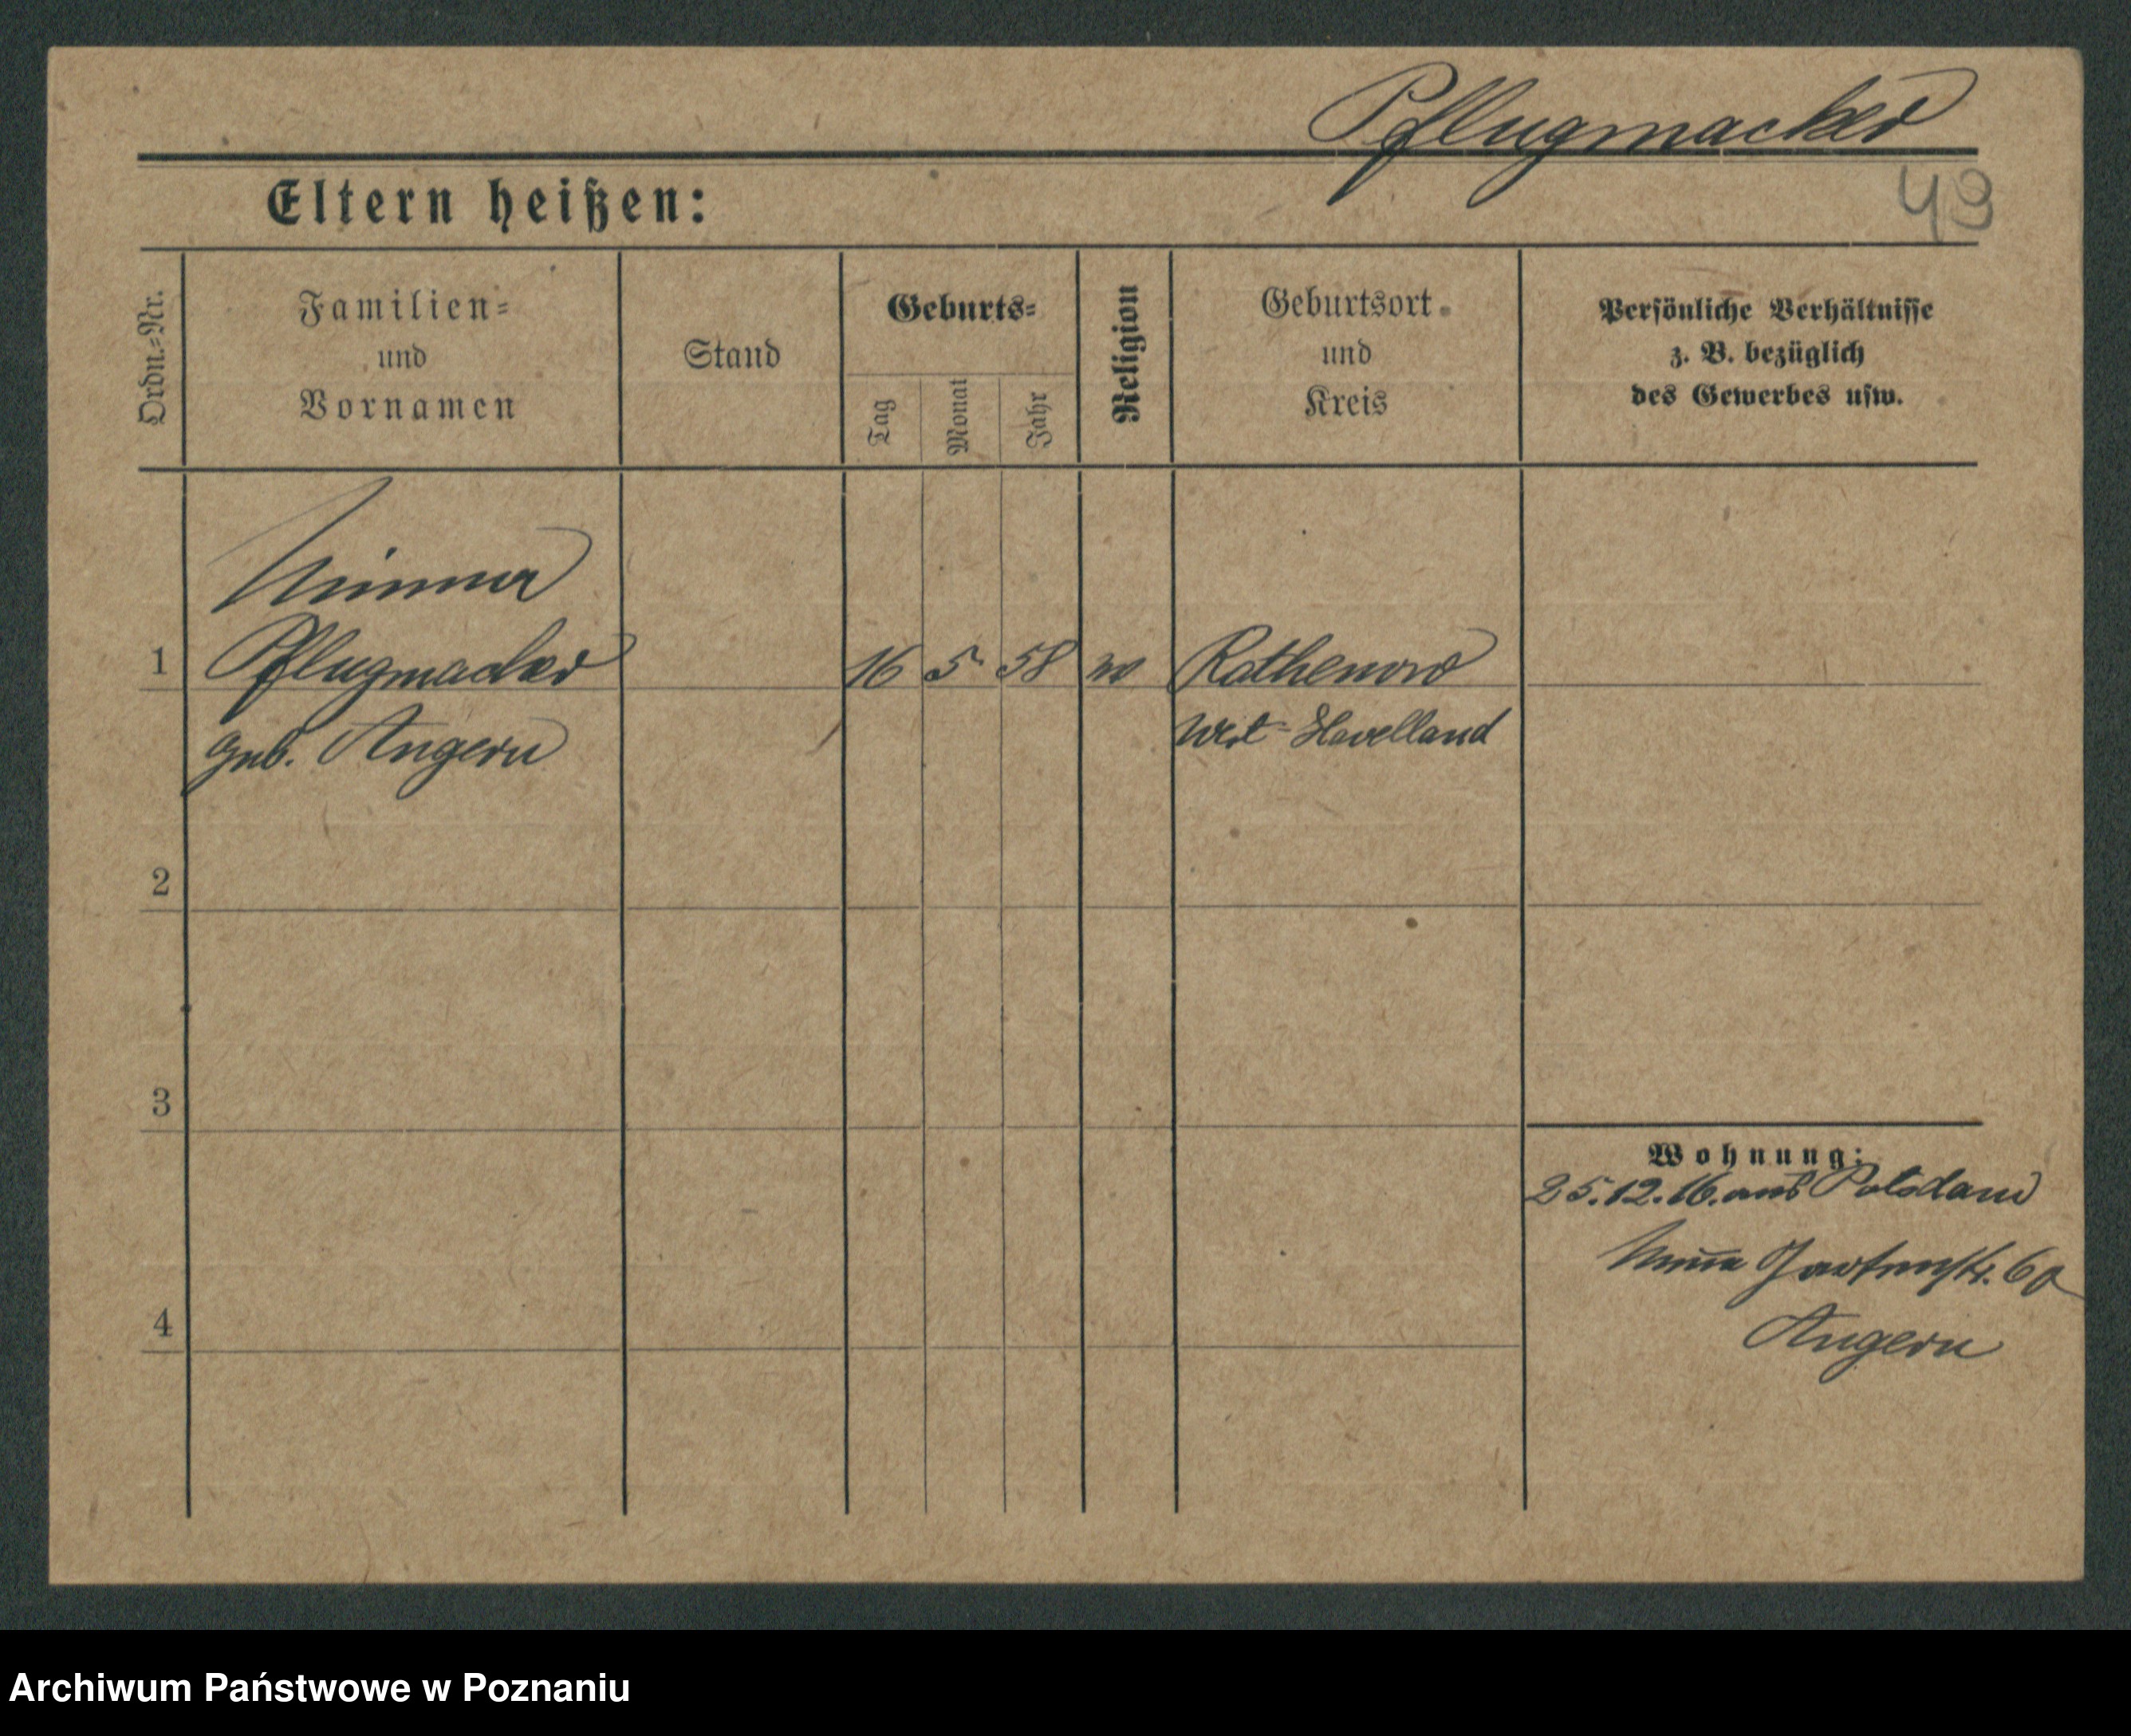 Pflugmacher
49
Eltern heißen:
Ordn.=Nr.
Familien=
und
Vornamen
Stand
Geburts=
Tag
Monat
Jahr
Religion
Geburtsort
und
Kreis
Persönliche Verhältnisse
z. B. bezüglich
des Gewerbes usw.
Minna
1 Pflugmacher 16 5 58 Rathenow
geb. Angern West-Havelland
2
3
4
Wohnung:
25.12.16. aus Potsdam
Gartenstr. 6a
Angern
Archiwum Państwowe w Poznaniu